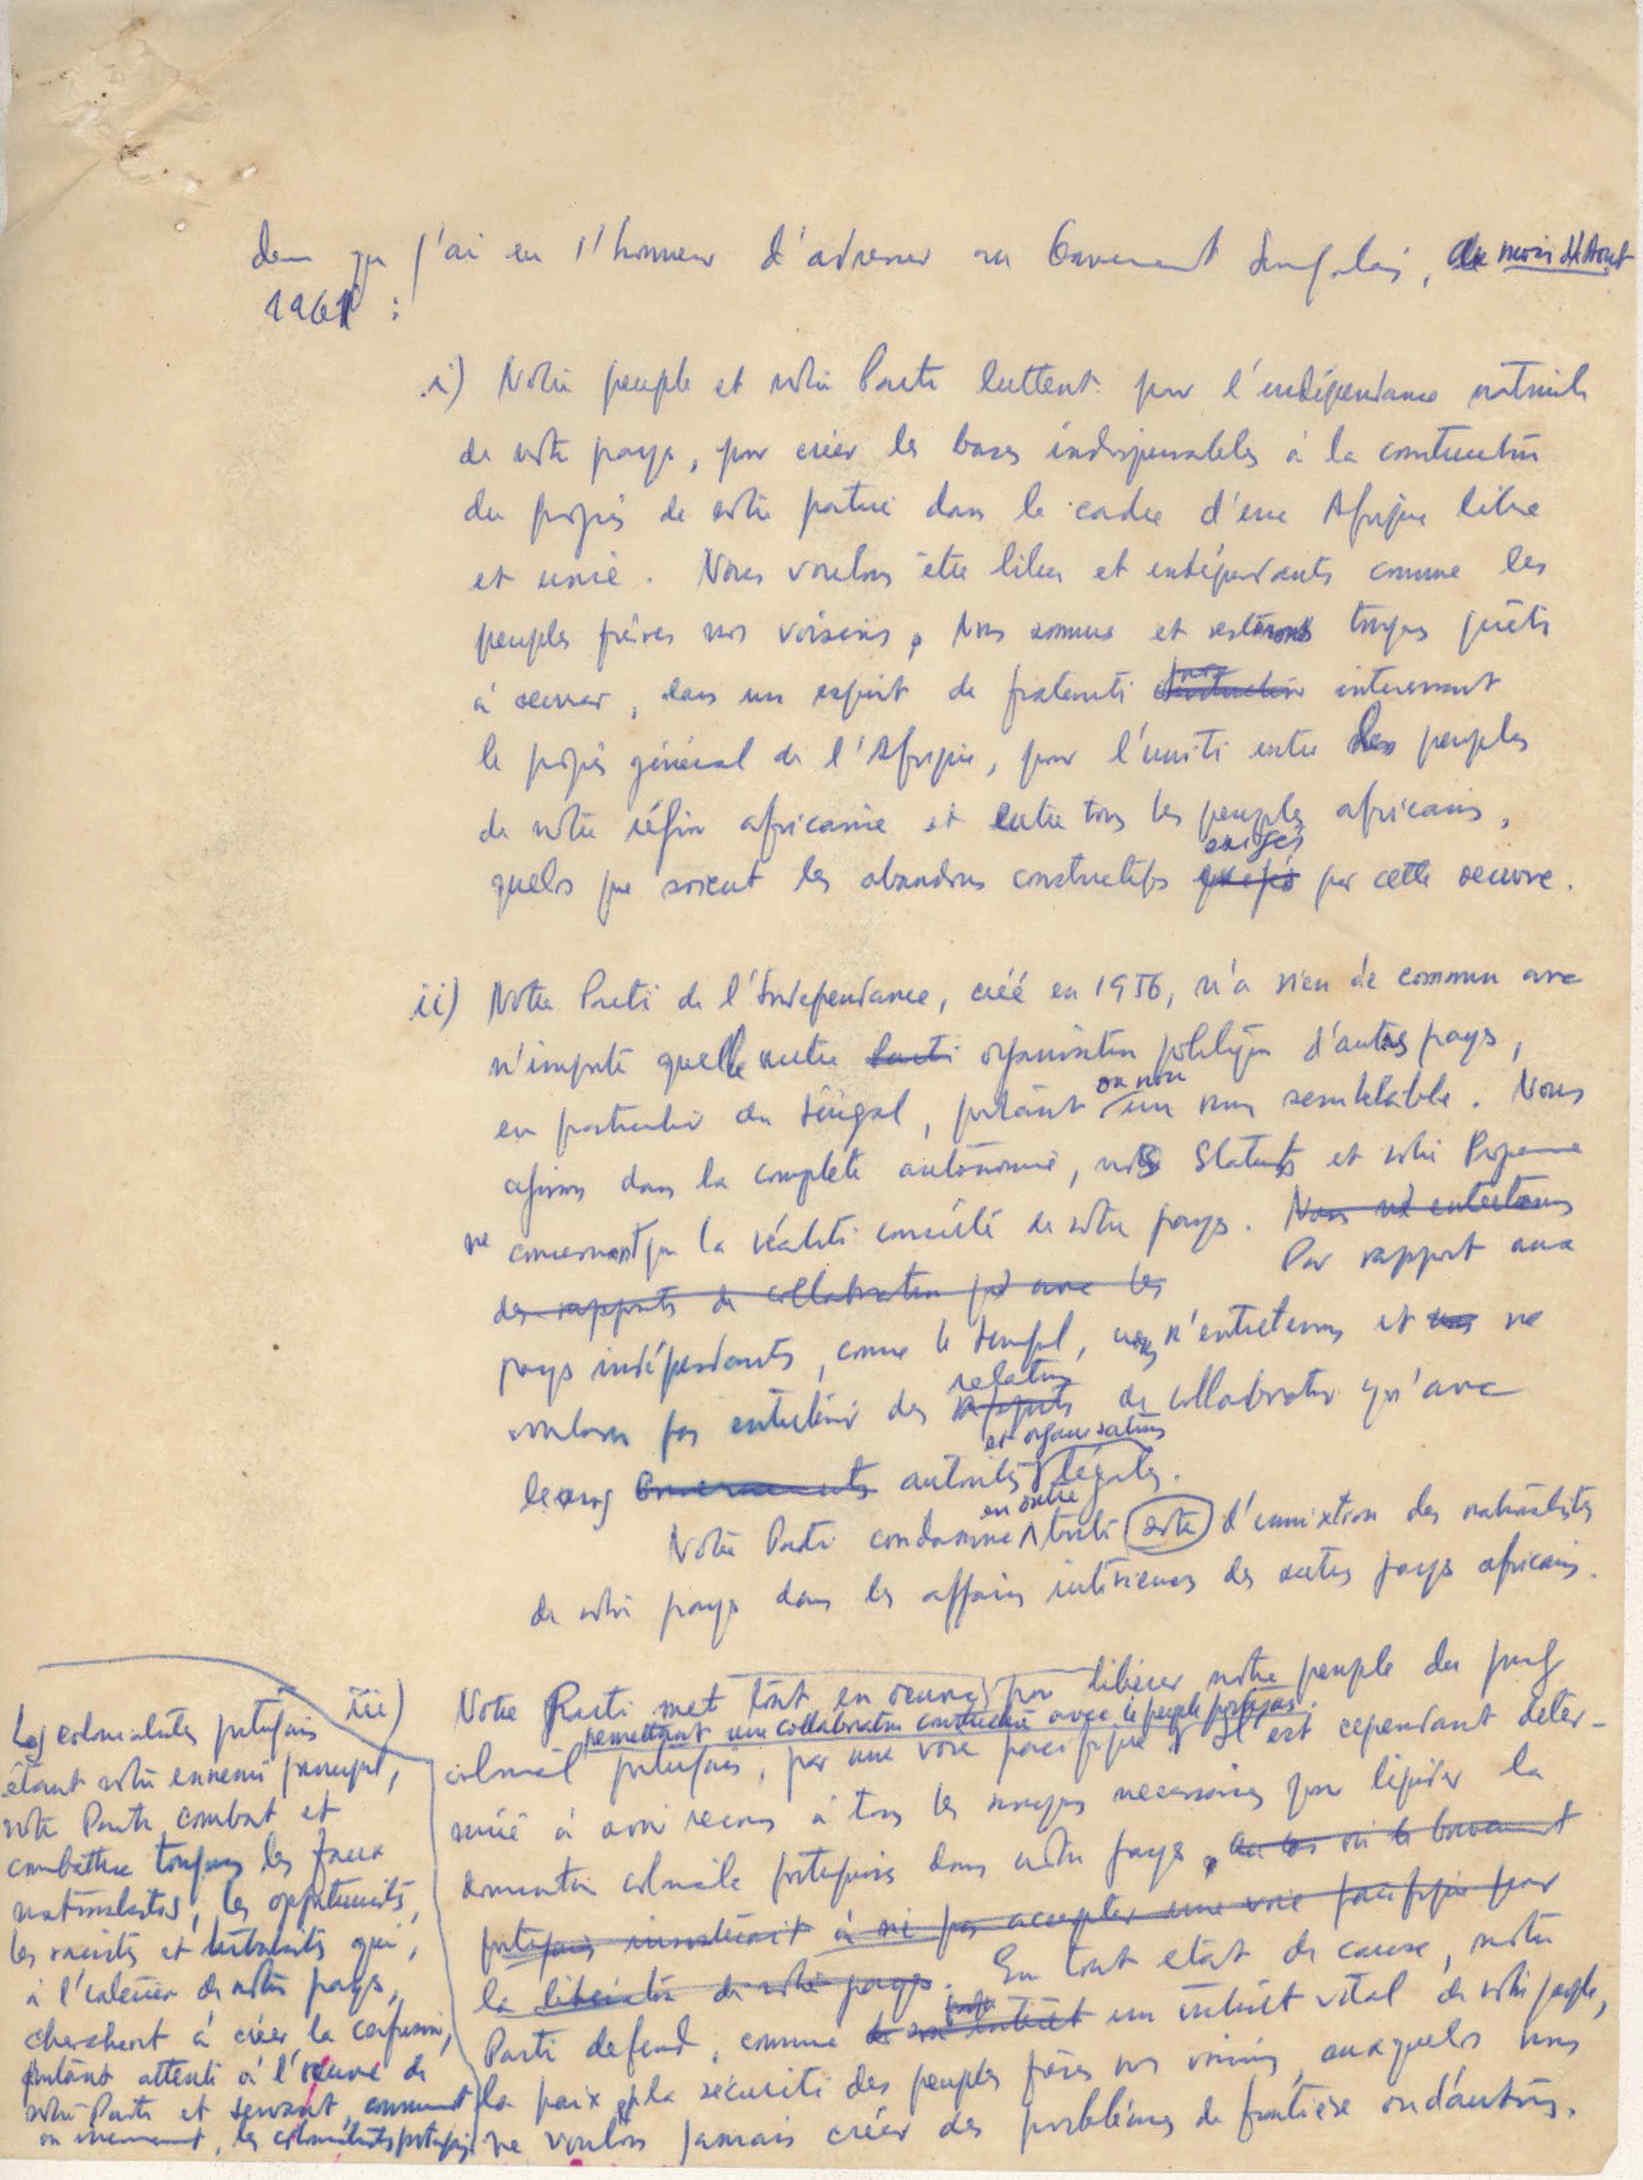 que j'ai eu l'honneur d'adresser au Gouvernement Sénégalais, de mois d'Août
1961 :
i) Notre peuple et notre Parti luttent pour l'indépendance nationale
de notre pays, pour créer les bases indispensables à la construction
du progrès de notre patrie dans le cadre d'une Afrique libre
et unie. Nous voulons être libres et indépendants comme les
peuples frères nos voisins, Nous sommes et resterons toujours prêts
à oeuvrer, dans un esprit de fraternité interessant
le progrès général de l'Afrique, pour l'unité entre les peuples
de notre région africaine et entre tous les peuples africains,
exigés
quels que soient les abandons constructifs par cette oeuvre.
ii) Notre Parti de l'Independance, créé en 1956, n'a rien de commun avec
n'importe quelle autre Parti organisation politique d'autres pays,
ou non
en particulier du Sénégal, portant un nom semblable. Nous
agissons dans la complète autonomie, nos Statuts et notre Programme
ne concernant que la réalité concrète de notre pays. Nous ne entretenons
des rapports de collaboration que avec les Par rapport aux
pays indépendants, comme le Sénégal, nous n'entretenons et ne
relations
voulons pas entretenir des rapports de collaboration qu'avec
et organisations
leurs Gouvernements autorités légales.
en outre
Notre Parti condamne toute sorte d'immixtion des nationalistes
de notre pays dans les affaires intérieures des autres pays africains.
iii) Notre Parti met tout en oeuvre pour libérer notre peuple du joug
permettant une collaboration constructive avec le peuple portugais.
colonial portugais, par une voie pacifique Il est cependant deter-
miné à avoir recours à tous les moyens necessaires pour liquider la
domination coloniale portugaise dans notre pays, au cas où le Gouvernement
portugais insisterait à ne pas accepter une voie pacifique pour
la libération de notre pays. En tout etat de cause, notre
Parti defend, comme un intérêt vital de notre peuple,
la paix et la sécurité des peuples frères nos voisins, auxquels nous
ne voulons jamais créer des problèmes de frontière ou d'autres.
Les colonialistes portugais
étant notre ennemi principal,
notre Parti combat et
combattra toujours les faux
nationalistes, les opportunistes,
les racistes et tribalistes qui,
à l'intérieur de notre pays,
cherchent à créer la confusion,
portant atteinte à l'oeuvre de
notre Parti et servant, consciemment
ou inconsciemment, les colonialistes portugais.